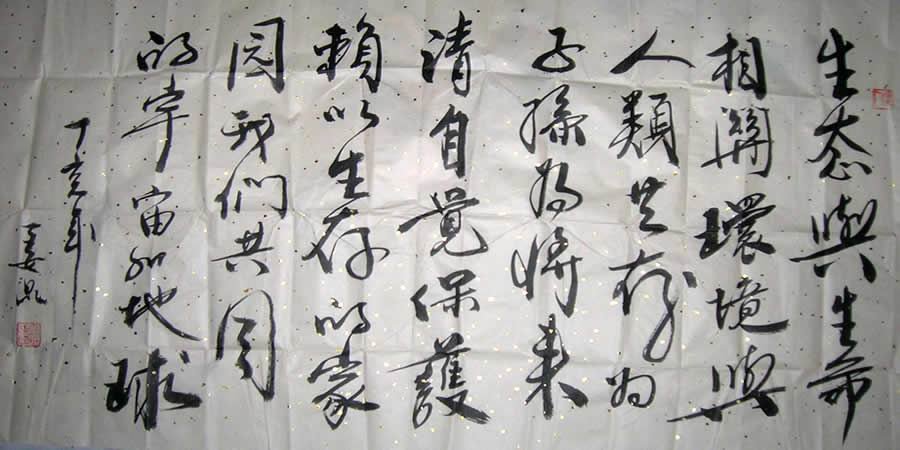 生态與生命
相關環境與
人類共存为
子孫为將来
请自覺保護
賴以生存的家
园我們共同
的宇宙和地球
丁亥年
姜昆